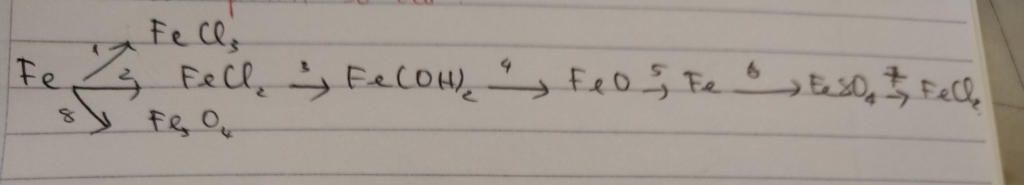 1 FeCl₃
Fe 2→ FeCl₂ 3→ Fe(OH)₂ 4→ FeO 5→ Fe 6→ FeSO₄ 7→ FeCl₂
8 Fe₃O₄